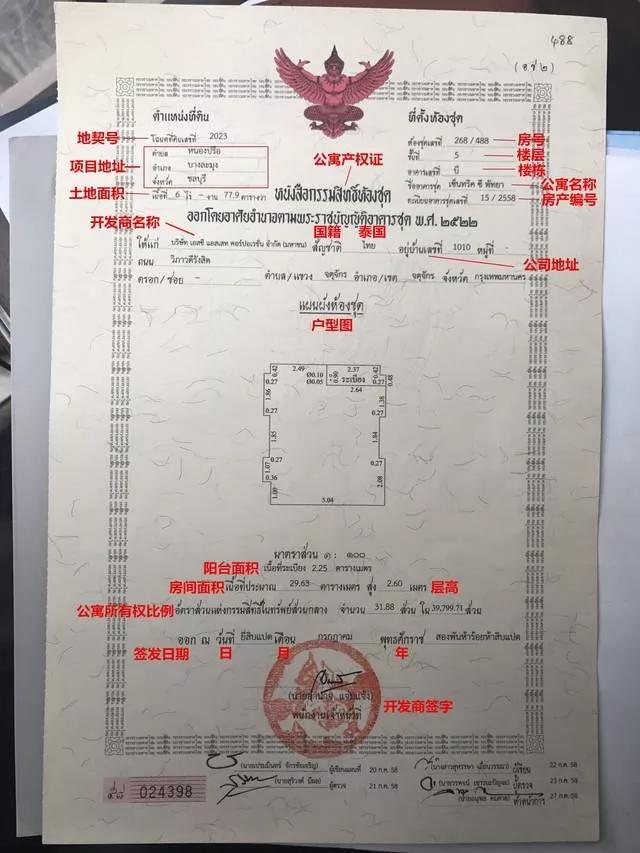 488
(อ.ช ๒)
ตำแหน่งที่ดิน
ที่ตั้งห้องชุด
地契号 โฉนดที่ดินเลขที่ 2023
ห้องชุดเลขที่ 268/488 房号
项目地址
ตำบล หนองปรือ
ชั้นที่ 5 楼层
อำเภอ บางละมุง
อาคารเลขที่ บี 楼栋
จังหวัด ชลบุรี
公寓产权证
ชื่ออาคารชุด เซ็นทริค ซี พัทยา 公寓名称
土地面积 เนื้อที่ 6 ไร่ - งาน 77.9 ตารางวา
หนังสือกรรมสิทธิ์ห้องชุด
ทะเบียนอาคารชุดเลขที่ 15/2558 房产编号
ออกโดยอาศัยอำนาจตามพระราชบัญญัติอาคารชุด พ.ศ. ๒๕๒๒
开发商名称
国籍 泰国
ให้แก่ บริษัท เอสซี แอสเสท คอร์ปอเรชั่น จำกัด (มหาชน) สัญชาติ ไทย อยู่บ้านเลขที่ 1010 หมู่ที่ -
ถนน วิภาวดีรังสิต
公司地址
ตรอก/ซอย - ตำบล/แขวง จตุจักร อำเภอ/เขต จตุจักร จังหวัด กรุงเทพมหานคร
แผนผังห้องชุด
户型图
2.49
2.37
0.42
0.42
Ø0.10
Ø0.05
0.90
ระเบียง
0.27
0.27
0.48
2.64
1.86
1.38
0.27
0.27
1.85
1.84
0.27
0.27
1.07
0.36
1.00
2.08
5.04
มาตราส่วน ๑ : ๑๐๐
阳台面积 เนื้อที่ระเบียง 2.25 ตารางเมตร
房间面积 เนื้อที่ประมาณ 29.63 ตารางเมตร สูง 2.60 เมตร 层高
公寓所有权比例 อัตราส่วนแห่งกรรมสิทธิ์ในทรัพย์ส่วนกลาง จำนวน 31.88 ส่วน ใน 39,799.71 ส่วน
ออก ณ วันที่ ยี่สิบแปด เดือน กรกฎาคม พุทธศักราช สองพันห้าร้อยห้าสิบแปด
签发日期 日 月 年
开发商签字
พนักงานเจ้าหน้าที่
ผู้เขียนแผนที่ 20 ก.ค. 58
ผู้เขียน 22 ก.ค. 58
ผู้ตรวจ 21 ก.ค. 58
ผู้ตรวจ 23 ก.ค. 58
หัวหน้าการ 27 ก.ค. 58
๕๘ 024398